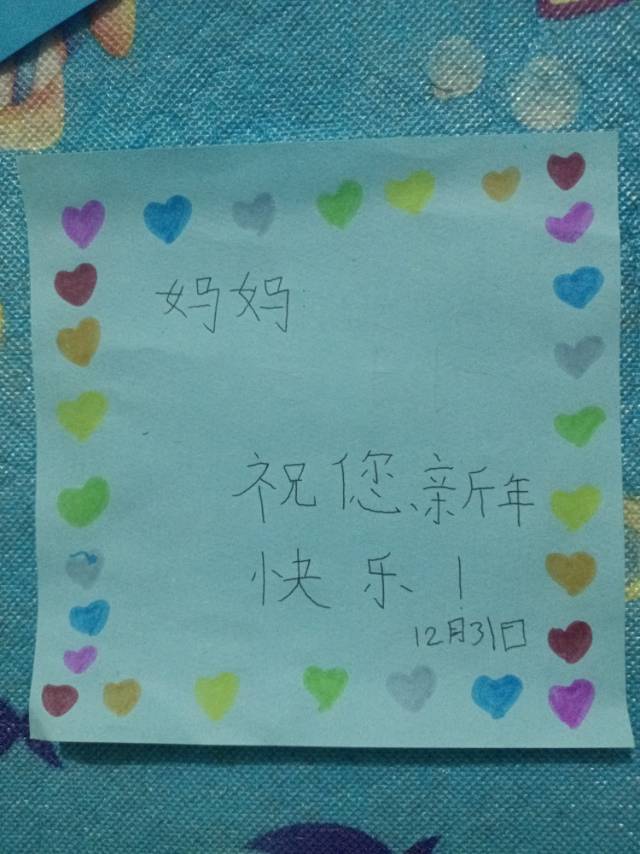 妈妈
祝您新年
快乐！
12月31日